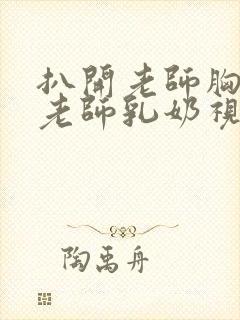 扒開老師胸
老師乳奶視
陶禹舟